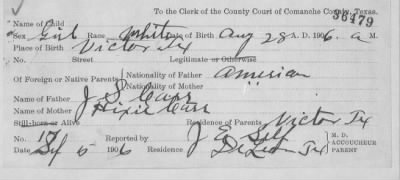 To the Clerk of the County Court of Comanche County, Texas.
36479
Name of Child
Sex Girl Race White Date of Birth Aug 28 A. D. 1906, a M.
Place of Birth Victor Tx
No. Street Legitimate or Otherwise
Of Foreign or Native Parents Nationality of Father American
Nationality of Mother
Name of Father J S Carr
Name of Mother Carr
Still-born or Alive Residence of Parents Victor Tx
No. 17 Reported by J E Self M. D.
Date 5 1906 De Leon Tx ACCOUCHEUR
PARENT